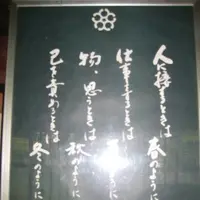 人に接するときは
春のように
仕事をするときは
のように
物を思うときは
秋のように
己を責めるときは
冬のように